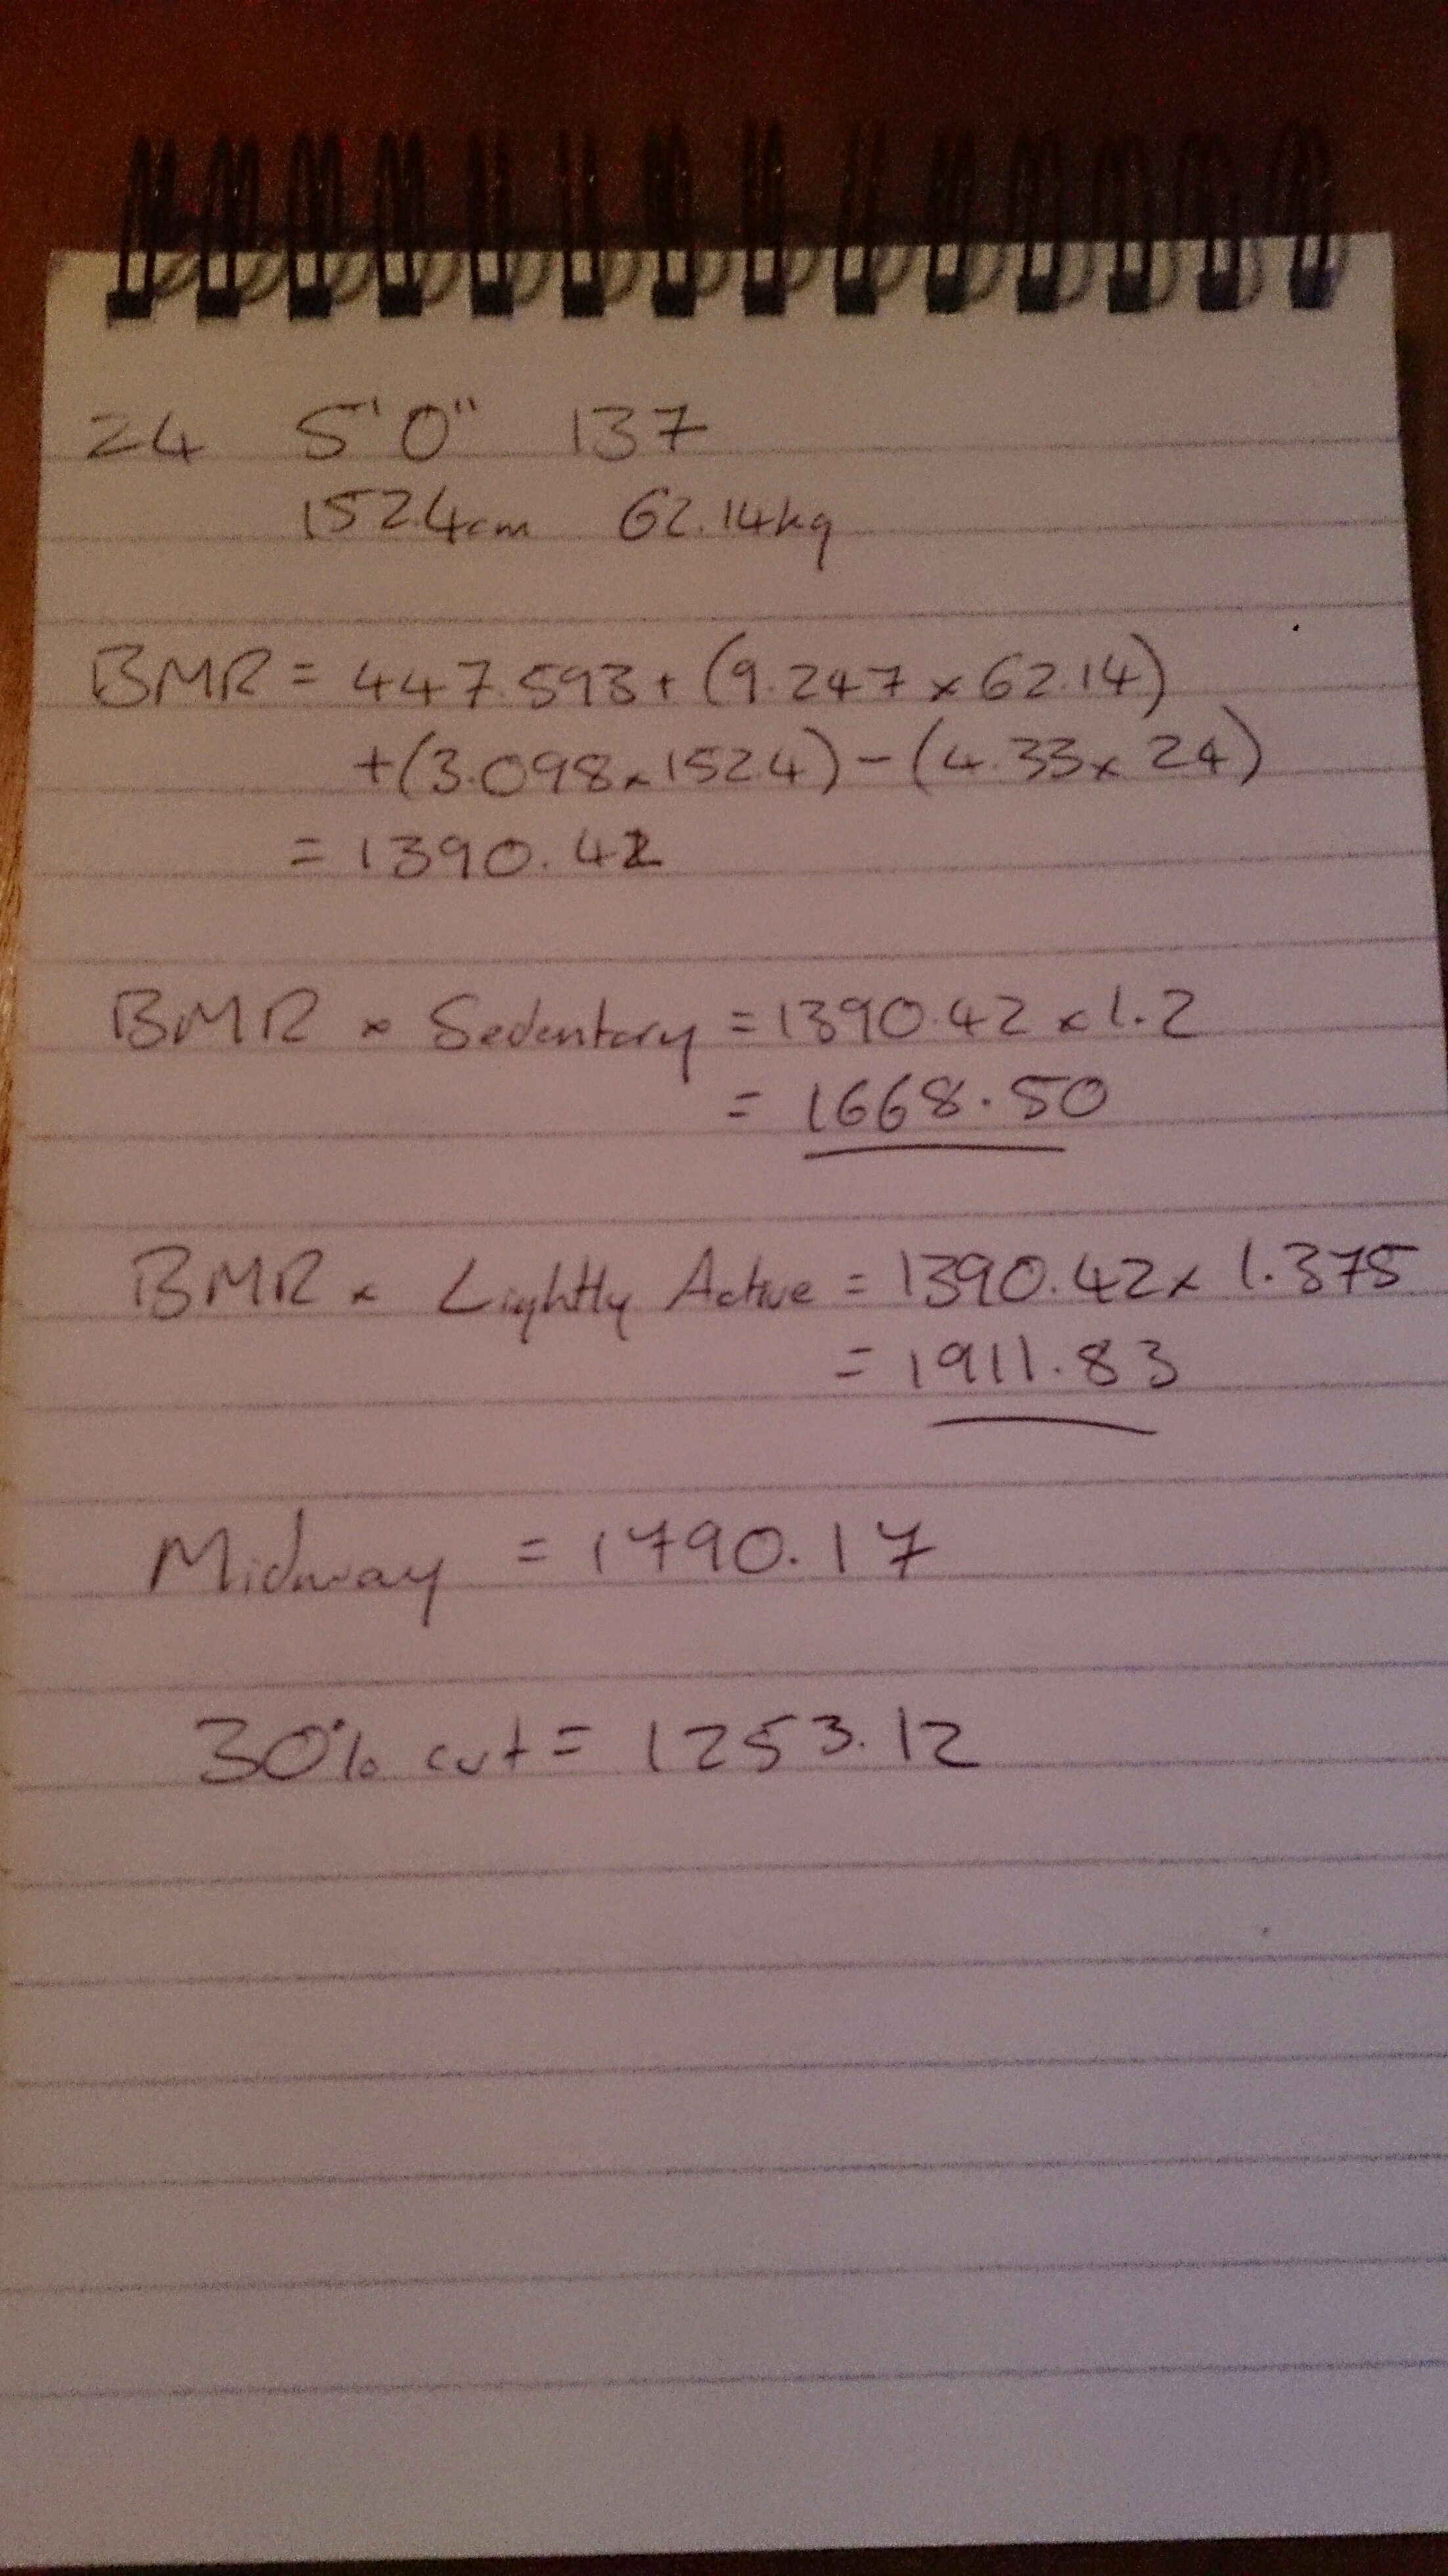 24 5'0" 137
152.4cm 62.14kg
BMR = 447.593 + (9.247 x 62.14)
+ (3.098 x 152.4) - (4.33 x 24)
= 1390.42
BMR x Sedentary = 1390.42 x 1.2
= 1668.50
BMR x Lightly Active = 1390.42 x 1.375
= 1911.83
Midway = 1790.17
30% cut = 1253.12